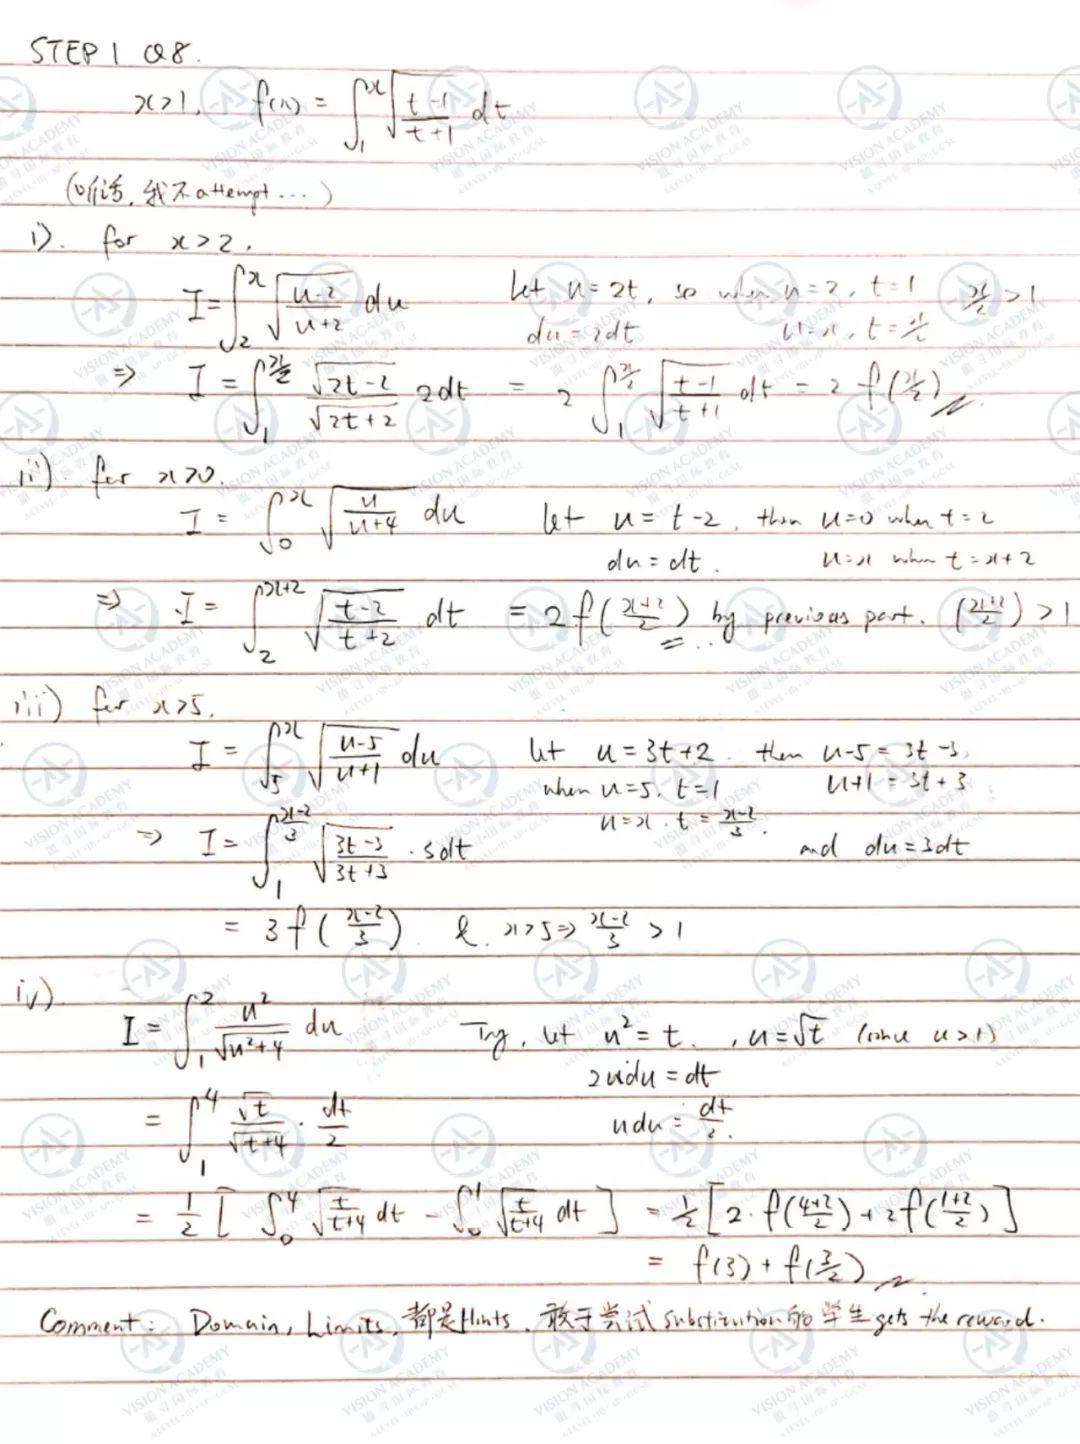 STEP 1 Q8.
x>1, f(x) = ∫₁ˣ √((t-1)/(t+1)) dt
(听话, 我不attempt...)
i). for x>2,
I = ∫₂ˣ √((u-2)/(u+2)) du Let u=2t, so when u=2, t=1 x/2 >1
du=2dt u=x, t=x/2
⇒ I = ∫₁^(x/2) √(2t-2)/√(2t+2) 2dt = 2 ∫₁^(x/2) √((t-1)/(t+1)) dt = 2 f(x/2)
ii) for x>0.
I = ∫₀ˣ √(u/(u+4)) du let u = t-2, then u=0 when t=2
du = dt. u=x when t=x+2
⇒ I = ∫₂^(x+2) √((t-2)/(t+2)) dt = 2f((x+2)/2) by previous part. ((x+2)/2) >1
iii) for x>5,
I = ∫₅ˣ √((u-5)/(u+1)) du let u = 3t+2. then u-5 = 3t-3,
when u=5, t=1 u+1 = 3t+3
u=x. t = (x-2)/3.
⇒ I = ∫₁^((x-2)/3) √((3t-3)/(3t+3)) · 3dt and du=3dt
= 3f((x-2)/3) &. x>5 ⇒ (x-2)/3 >1
iv)
I = ∫₁² u²/√(u²+4) du Try, let u² = t. , u=√t (since u>1)
2udu = dt
= ∫₁⁴ √t/√(t+4) · dt/2 udu = dt/2.
= 1/2 [ ∫₀⁴ √(t/(t+4)) dt - ∫₀¹ √(t/(t+4)) dt ] = 1/2 [2·f((4+2)/2) + 2f((1+2)/2)]
= f(3) + f(3/2)
Comment: Domain, Limits, 都是Hints, 敢于尝试 substitution的学生 gets the reward.
VISION ACADEMY
A-LEVEL·IB·AP·GCSE